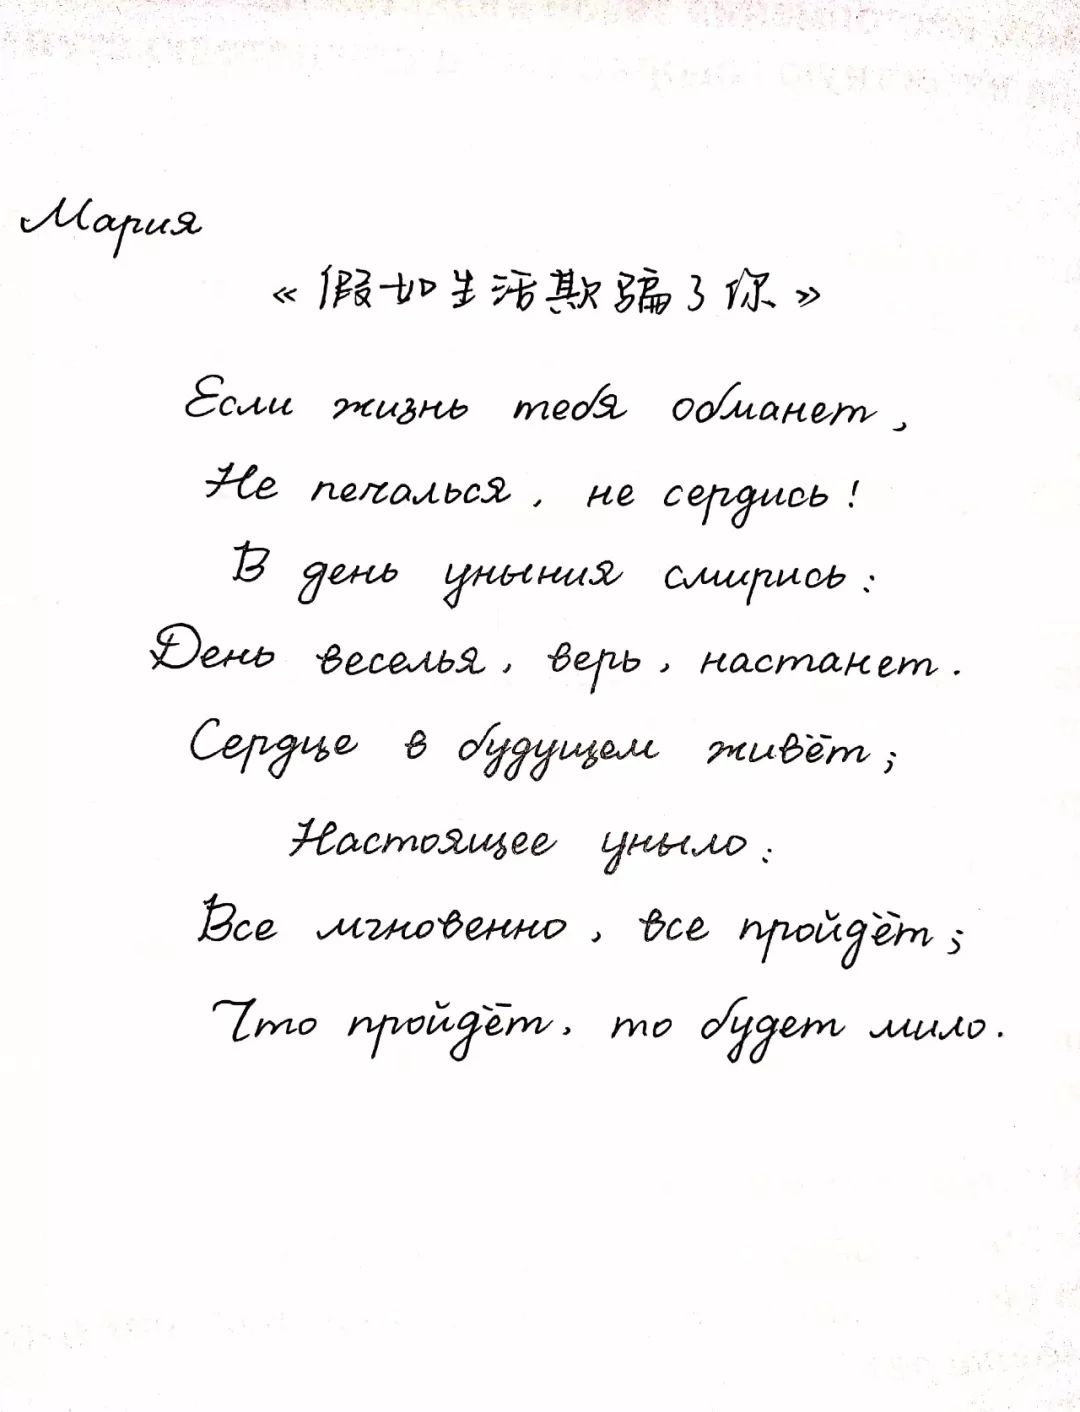 Мария
«假如生活欺骗了你»
Если жизнь тебя обманет,
Не печалься, не сердись!
В день уныния смирись:
День веселья, верь, настанет.
Сердце в будущем живёт;
Настоящее уныло:
Все мгновенно, все пройдёт;
Что пройдёт, то будет мило.